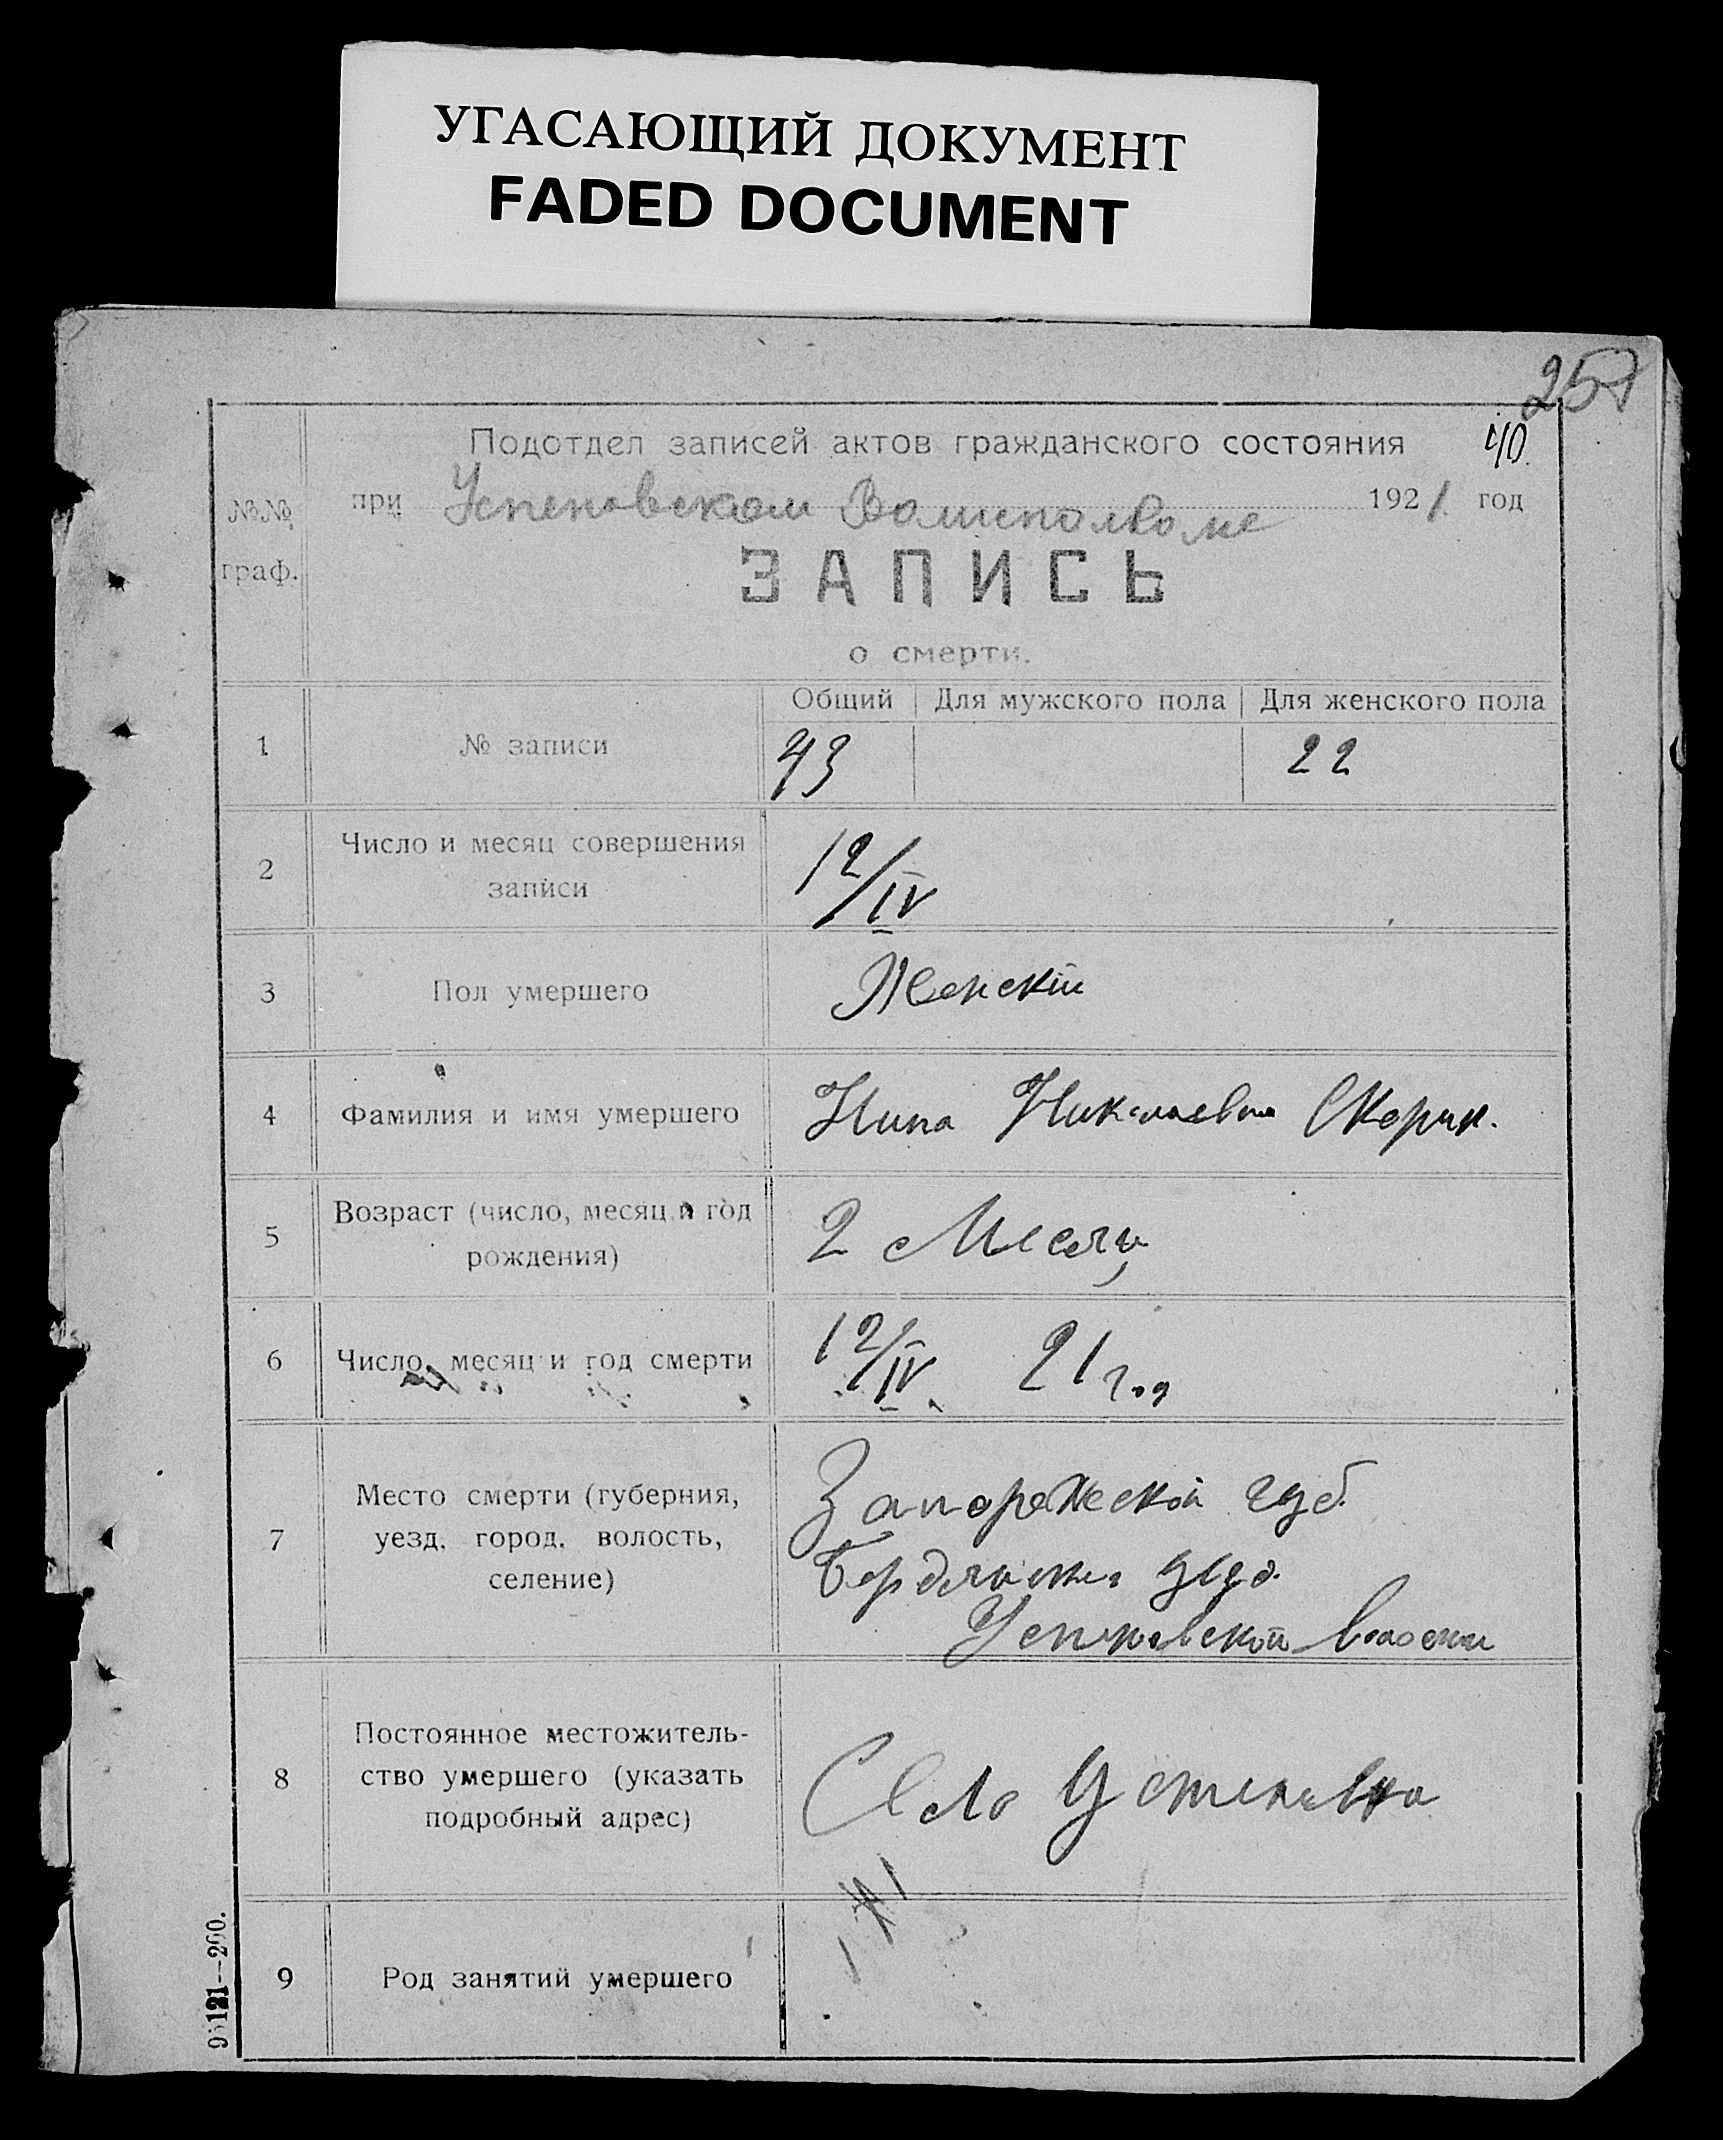 УГАСАЮЩИЙ ДОКУМЕНТ
FADED DOCUMENT
257
40.
Подотдел записей актов гражданского состояния
при Успеновском Волисполкоме 1921 год
№№
граф.
ЗАПИСЬ
о смерти.
Общий Для мужского пола Для женского пола
1 № записи 43 22
2 Число и месяц совершения
записи 12/IV
3 Пол умершего Женскій
4 Фамилия и имя умершего Нина Николаевна Скорик.
5 Возраст (число, месяц и год
рождения) 2 Месяц
6 Число, месяц и год смерти 12/IV 21 год
7 Место смерти (губерния,
уезд, город, волость,
селение)
Запорожской губ.
Бердянска уезд.
Успеновской волости
8 Постоянное местожитель-
ство умершего (указать
подробный адрес)
Село Успеновка
9 Род занятий умершего